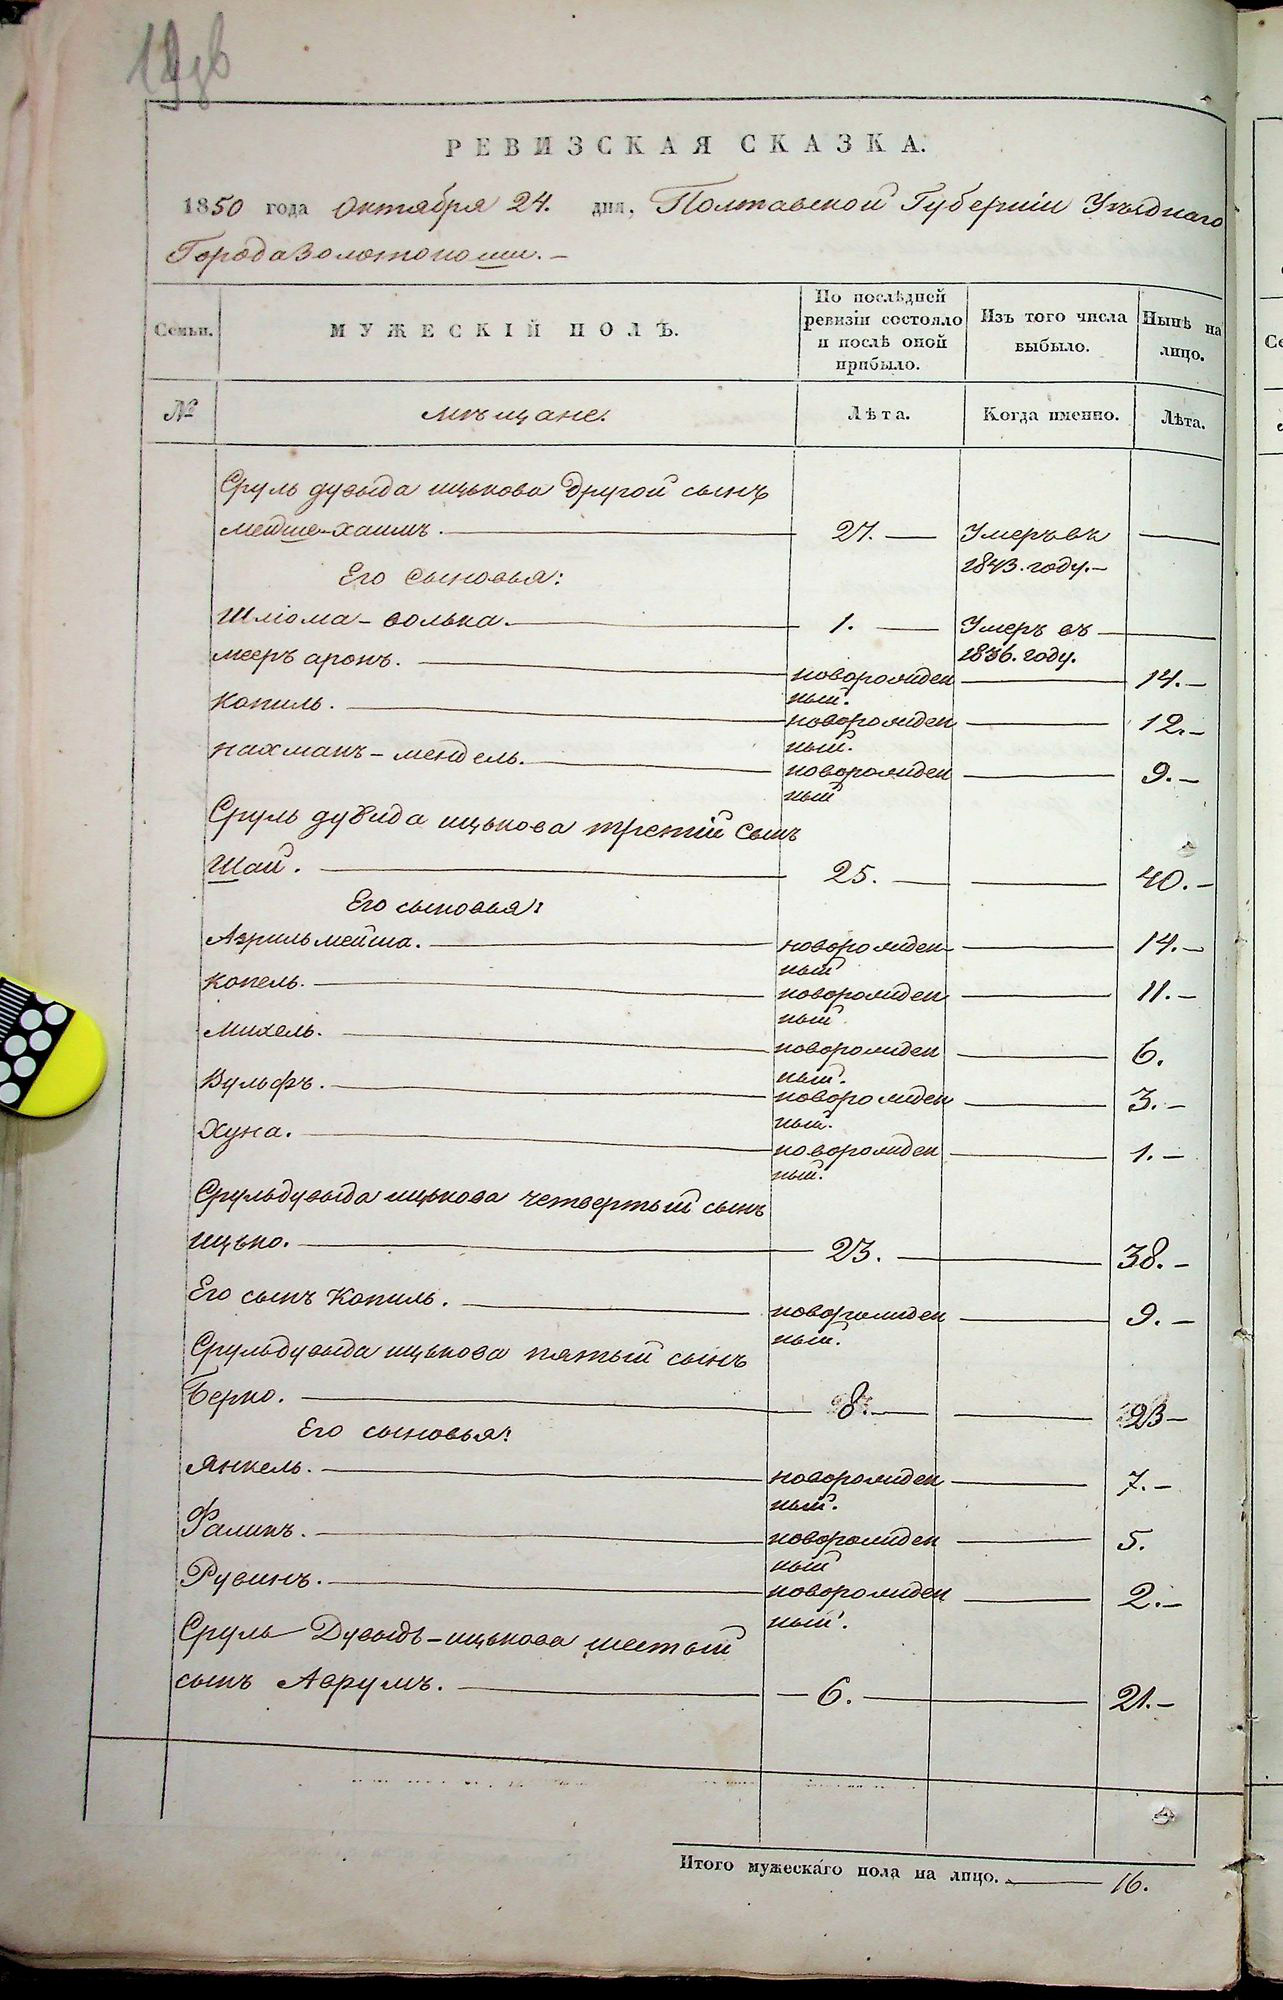 РЕВИЗСКАЯ СКАЗКА.
1850 года октября 24. дня, Полтавской Губерніи Уѣзднаго
Города Золотоноши. –
Семьи. МУЖЕСКІЙ ПОЛЪ. По послѣдней ревизіи состояло и послѣ оной прибыло. Изъ того числа выбыло. Нынѣ на лицо.
№ мѣщане. Лѣта. Когда именно. Лѣта.
Сруль дувыда ицькова другой сынъ
мейше-хаимъ. 27. Умеръ въ
1843. году. –
Его сыновья:
Шліома-волька. 1. Умеръ въ
1836. году.
мееръ аронъ. новорожден 14. –
ный.
копиль. новорожден 12. –
ный.
нахманъ-мендель. новорожден 9. –
ный
Сруль дувида ицькова третій сынъ
Шай. 25. 40. –
Его сыновья:
Азрильмейша. новорожден- 14. –
ный
копель. новорожден 11. –
ный
михель. новорожден 6.
ный.
Вульфъ. новорожден 3. –
ный.
Хуна. новорожден 1. –
ный.
Срульдувыда ицькова четвертый сынъ
ицько. 23. 38. –
Его сынъ Копиль. новорожден 9. –
ный.
Срульдувыда ицькова пятый сынъ
Берко. 8. 23 –
Его сыновья:
Янкель. новорожден 7. –
ный.
Фаликъ. новорожден 5.
ный
Рувинъ. новорожден 2. –
ный.
Сруль Дувыдъ-ицькова шестый
сынъ Аврумъ. 6. 21. –
Итого мужескаго пола на лицо. 16.